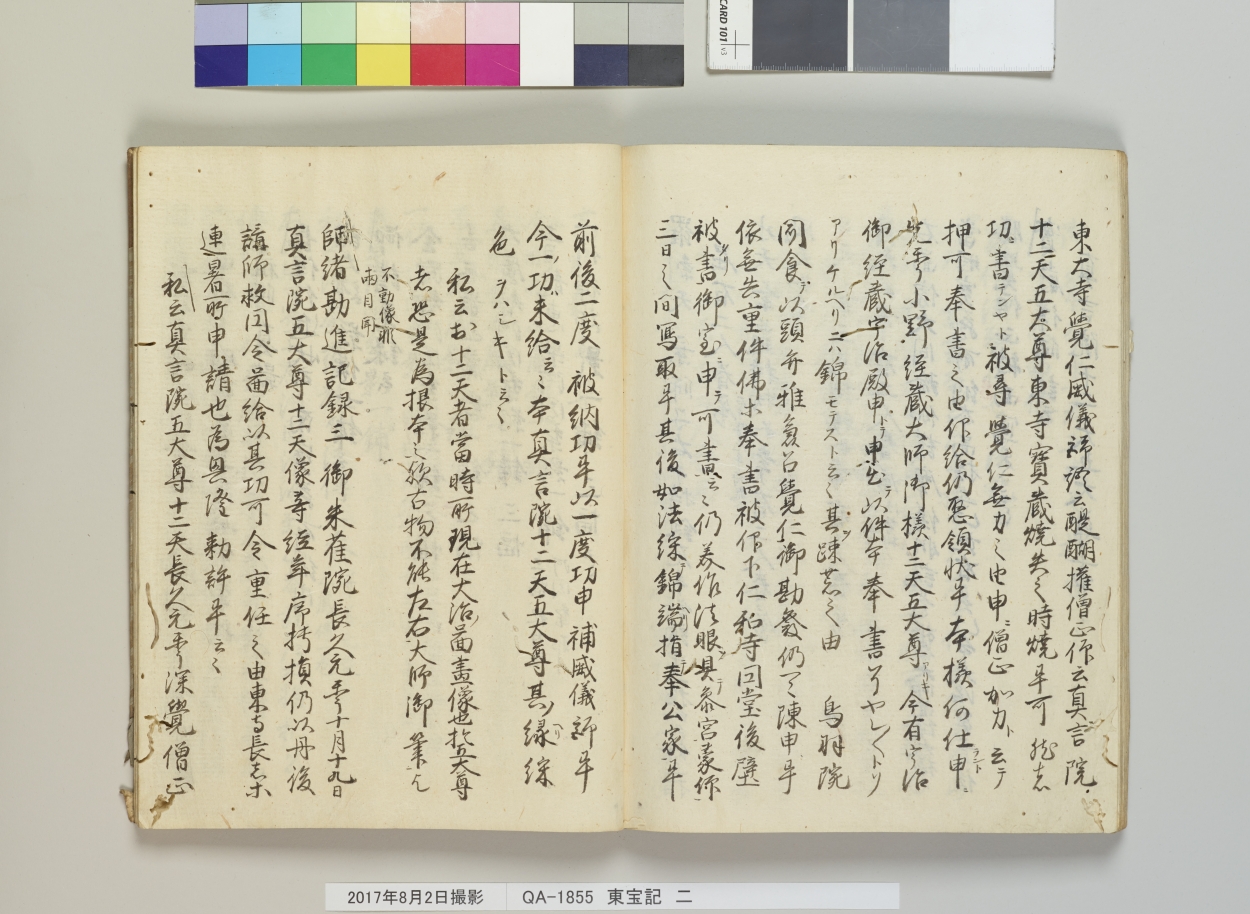 東大寺覺仁威儀師語云醍醐権僧正作云真言院
十二天五大尊東寺寶蔵焼失之時焼畢可
功書テンヤト被尋覺仁無力之由申ニ僧正加力ト云テ
押可奉書之由作給仍愁領状畢本様何仕ラント申ニ
小野経蔵大師御様十二天五大尊アリキ今有宇治
御経蔵宇治殿申トラ申出テ以件本奉書
アリケルヘリニハ錦モテスト云々其疎荒之由 鳥羽院
聞食テ以頭弁雅召覺仁御勘發仍陳申畢
依無告重件佛ホ奉書被作下仁和寺回堂後壁
被書御室ニ申テ可畫云々仍法眼具テ参宮蒙
三日之間写取畢其後如法綵錦端指テ奉公家畢
前後二度被納功畢以一度功申補威儀師畢
今一功未給云々本真言院十二天五大尊其縁綵
色ヲハシキト云々
私云於十二天者當時所現在大治圖畫像也於五大尊
者恐是為根本之歟古物不能左右大師御筆
不動像耶
両目開
師緒勘進記録三御朱雀院長久元年十月十九日
真言院五大尊十二天像等経年序損仍以丹後
講師救円令圖給以其功可令重任之由東寺長者ホ
連署所申請也為興隆勅許畢云々
私云真言院五大尊十二天長久元年深覺僧正
2017年8月2日撮影 QA-1855 東宝記 二
CARD 101 v3